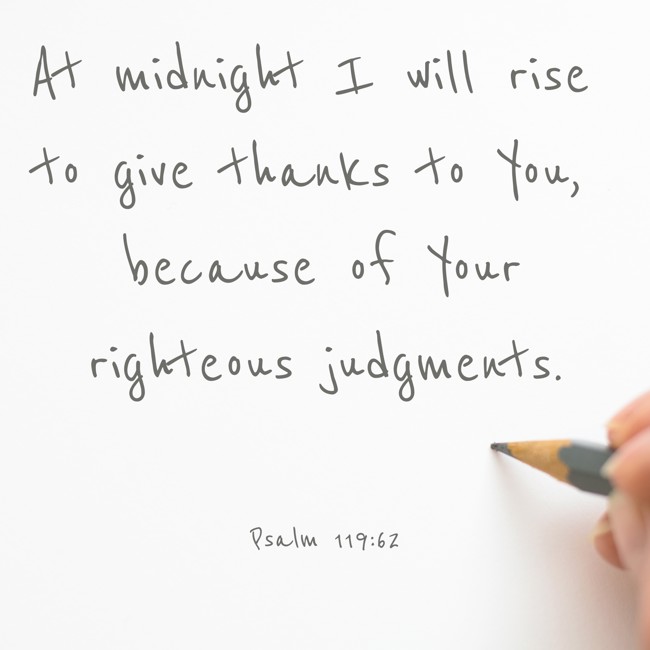 At midnight I will rise
to give thanks to You,
because of Your
righteous judgments.
Psalm 119:62